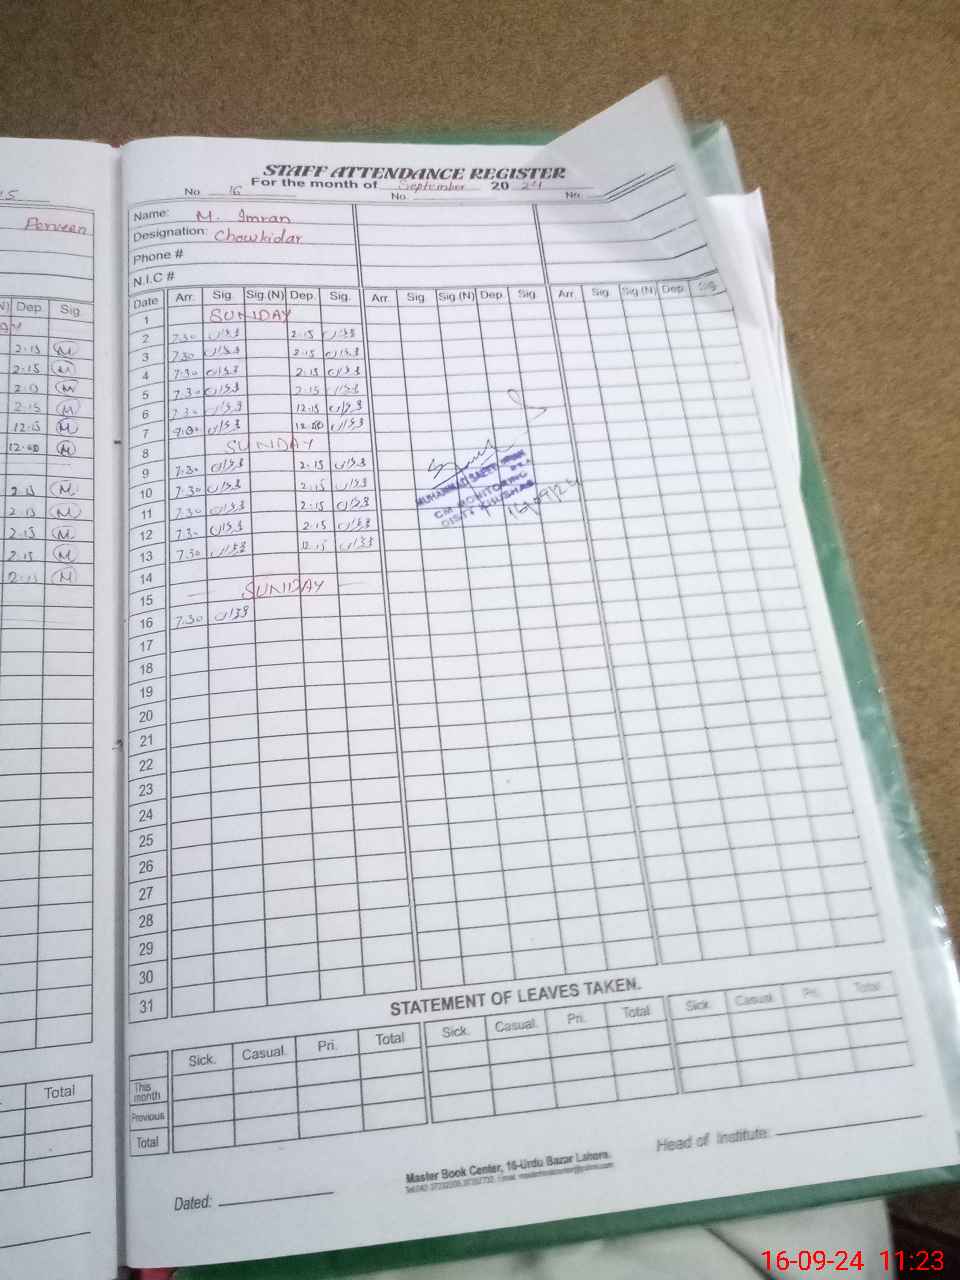 STAFF ATTENDANCE REGISTER
For the month of September 20 24
No 16 No. No.
Name: M. Imran
Designation: Chowkidar
Phone #
N.I.C #
Date Arr. Sig. Sig.(N) Dep. Sig. Arr. Sig. Sig.(N) Dep. Sig. Arr. Sig. Sig.(N) Dep. Sig.
1 SUNDAY
2 7.30 2.15
3 7.30 2.15
4 7.30 2.15
5 7.30 2.15
6 7.30 12.15
7
8 SUNDAY
9 7.30 2.15
10 7.30 2.15
11 7.30 2.15
12 7.30 2.15
13 7.30 12.15
14
15 SUNDAY
16 7.30
17
18
19
20
21
22
23
24
25
26
27
28
29
30
31
CM MONITORING
DISTT KHUSHAB
16/09/24
STATEMENT OF LEAVES TAKEN.
Sick. Casual. Pri. Total Sick. Casual. Pri. Total Sick. Casual. Pri. Total
This month
Previous
Total
Dated:
Master Book Center, 16-Urdu Bazar Lahore.
Head of Institute:
Perveen
Dep. Sig.
2.15 M
2.15 M
2.15 M
2.15 M
12.15 M
12.00 M
2.15 M
2.15 M
2.15 M
2.15 M
12.15 M
Total
16-09-24 11:23